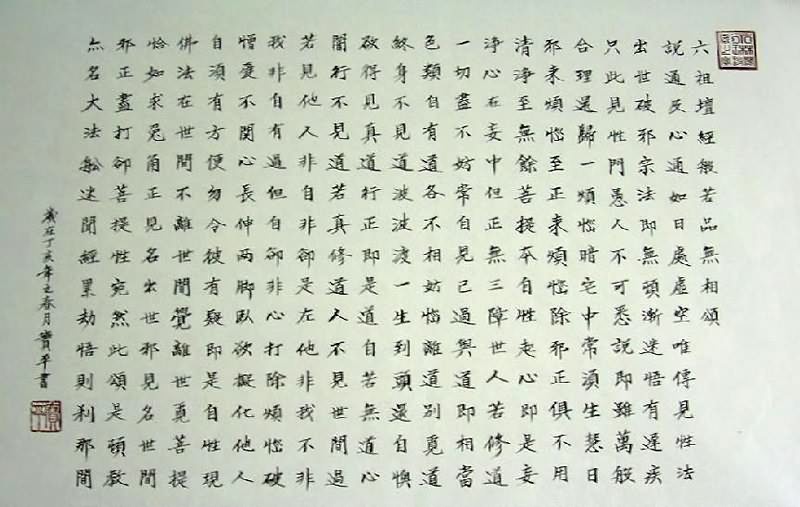 六祖壇經般若品無相頌
說通及心通如日處虛空唯傳見性法
出世破邪宗法即無頓漸迷悟有遲疾
只此見性門愚人不可悉說即雖萬般
合理還歸一煩惱暗宅中常須生慧日
邪來煩惱至正來煩惱除邪正俱不用
清淨至無餘菩提本自性起心即是妄
淨心在妄中但正無三障世人若修道
一切盡不妨常自見己過與道即相當
色類自有道各不相妨惱離道別覓道
終身不見道波波渡一生到頭還自懊
欲得見真道行正即是道自若無道心
闇行不見道若真修道人不見世間過
若見他人非自非卻是左他非我不非
我非自有過但自卻非心打除煩惱破
憎愛不關心長伸兩腳臥欲擬化他人
自須有方便勿令彼有疑即是自性現
佛法在世間不離世間覺離世覓菩提
恰如求兔角正見名出世邪見名世間
邪正盡打卻菩提性宛然此頌是頓教
亦名大法船迷聞經累劫悟則剎那間
歲在丁亥年之春月寶平書